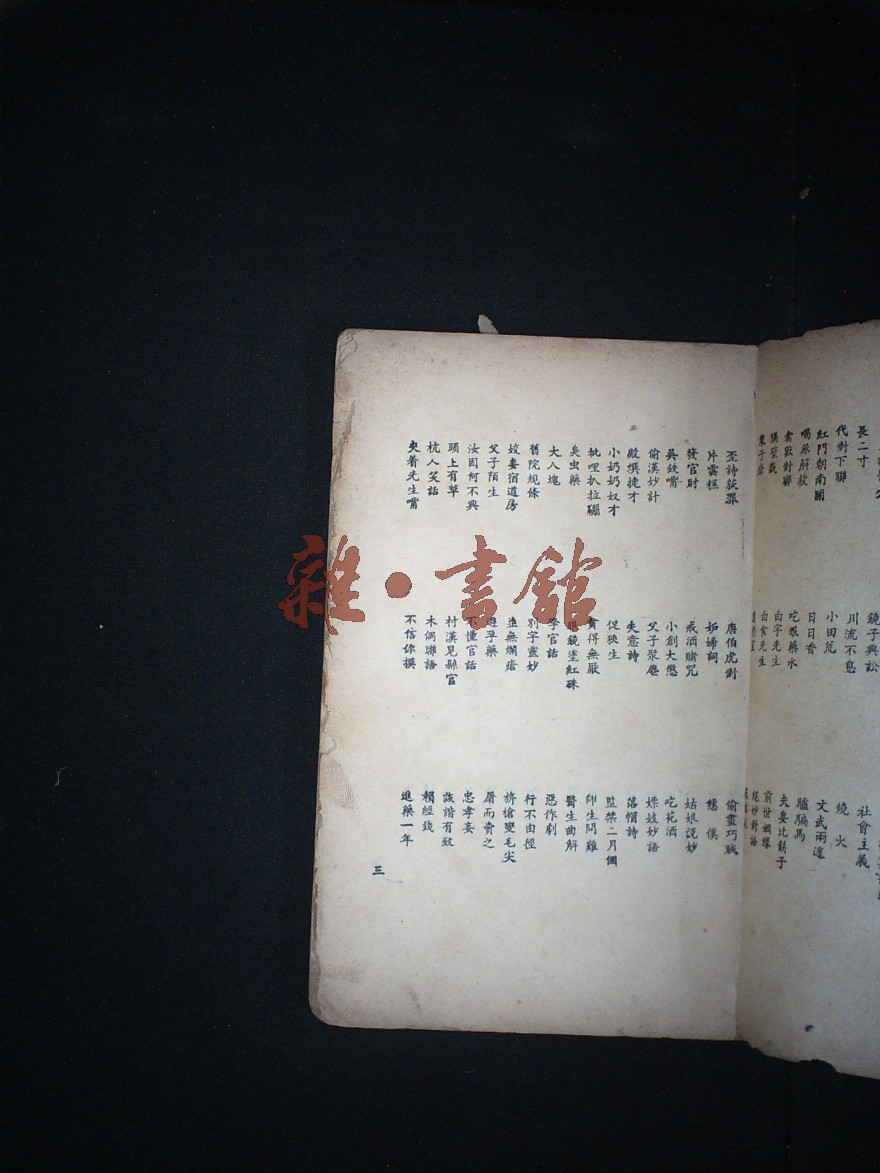 長二寸
代對下聯
紅門朝南開
喝尿解放
禽獸對聯
隔壁戲
鏡子興訟
川流不息
小田荒
日日香
吃眼藥水
白字先生
白食先生
社會主義
燒火
文武兩途
驢騙馬
夫妻比鬍子
前世姻緣
絕妙對話
歪詩获罪
片雲糕
發官財
吳鉄嘴
偷漢妙計
殿撰捷才
小奶奶奴才
批哩扒拉硼
臭虫藥
大八塊
舊院規條
姣妻宿道房
父子陌生
汝因何不興
頭上有草
杭人笑話
央着先生嘴
唐伯虎對
妬婦詞
戒酒賭咒
小創大懲
父子聚麀
失意詩
促狹生
貪得無厭
眼鏡塗紅硃
學官話
別字靈妙
並無爛瘡
遊孚藥
不懂官話
村漢見縣官
木偶聯語
不信你摸
偷畫巧賊
戇僕
姑娘説妙
吃花酒
嫖妓妙語
落帽詩
監禁二月個
師生問難
醫生曲解
惡作劇
行不由徑
旂槍變毛尖
屠而貴之
忠孝妾
詼諧有致
賴經錢
進藥一年
三
雜·書館